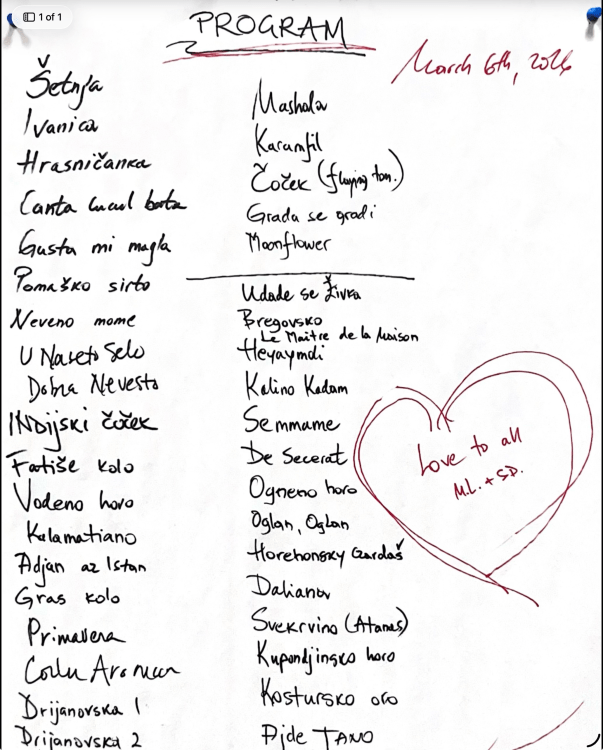 1 of 1
PROGRAM
March 6th, 2026
Šetnja
Ivanica
Hrasničanka
Canta cucul bata
Gusta mi magla
Pomaško sirto
Neveno mome
U Naseto Selo
Dobra Nevesto
INDijski čoček
Fatiše kolo
Vodeno horo
Kalamatiano
Adjan az Istan
Gras kolo
Primavera
Corlu Aroman
Drijanovska 1
Drijanovska 2
Mashala
Karamfil
Čoček (flying tom.)
Grada se gradi
Moonflower
Udade se Živka
Bregovsko
Le Maître de la Maison
Heyaymoli
Kalino Kadam
Semmame
De Secerat
Ogneno horo
Oglan, Oglan
Horehonsky Czardaš
Dalianov
Svekrvino (Atanas)
Kupondjinsko horo
Kostursko oro
Ajde TANO
Love to all
M.L. + S.D.